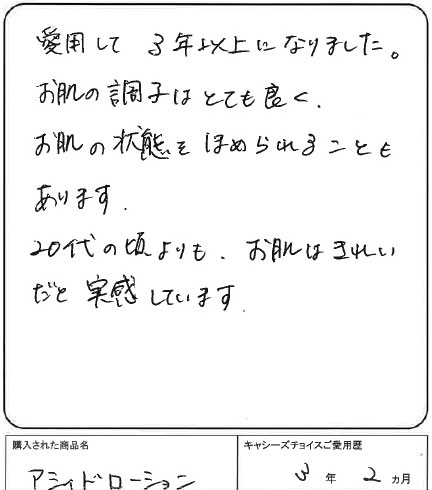 愛用して3年以上になりました。
お肌の調子はとても良く、
お肌の状態をほめられることも
あります。
20代の頃よりも、お肌はきれい
だと実感しています。
購入された商品名
キャシーズチョイスご愛用歴
アシィドローション
3年2ヵ月